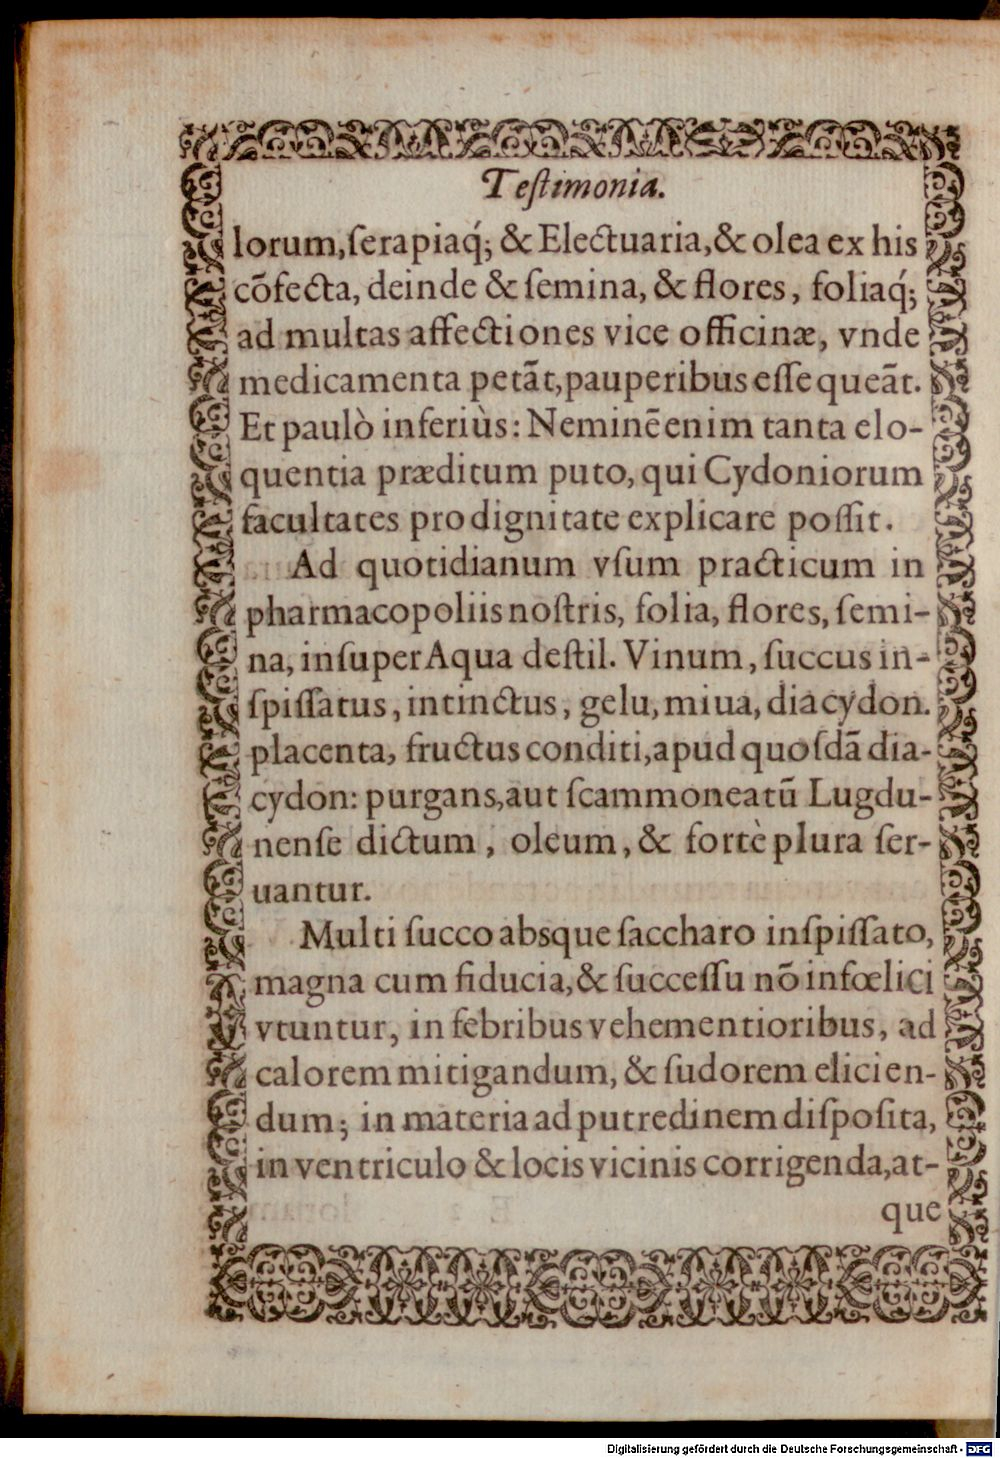 Teſtimonia.
lorum, ſerapiaq́; & Electuaria, & olea ex his
cõfecta, deinde & ſemina, & flores, foliaq́;
ad multas affectiones vice officinæ, vnde
medicamenta petãt, pauperibus eſſe queãt.
Et paulò inferiùs: Neminẽ enim tanta elo-
quentia præditum puto, qui Cydoniorum
facultates pro dignitate explicare poſſit.
Ad quotidianum vſum practicum in
pharmacopoliis noſtris, folia, flores, ſemi-
na, inſuper Aqua deſtil. Vinum, ſuccus in-
ſpiſſatus, intinctus, gelu, miua, diacydon.
placenta, fructus conditi, apud quoſdã dia-
cydon: purgans, aut ſcammoneatũ Lugdu-
nenſe dictum, oleum, & fortè plura ſer-
uantur.
Multi ſucco absque ſaccharo inſpiſſato,
magna cum fiducia, & ſucceſſu nõ infœlici
vtuntur, in febribus vehementioribus, ad
calorem mitigandum, & ſudorem elicien-
dum; in materia ad putredinem diſpoſita,
in ventriculo & locis vicinis corrigenda, at-
que
Digitalisierung gefördert durch die Deutsche Forschungsgemeinschaft - DFG